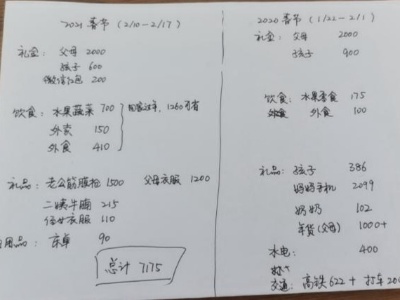 2021 春节 (2/10-2/17)
礼金: 父母 2000
孩子 600
微信红包 200
饮食: 水果蔬菜 700
外卖 150
外食 410
1260可省
礼品: 老公筋膜枪 1500 父母衣服 1200
二姨牛腩 215
侄女衣服 110
用品: 床单 90
总计 7175
2020 春节 (1/22-2/1)
礼金: 父母 2000
孩子 900
饮食: 水果零食 175
外食 100
礼品: 孩子 386
奶奶手机 2099
奶奶 102
年货(父母) 1000+
水电: 400
交通: 高铁 622 + 打车 200